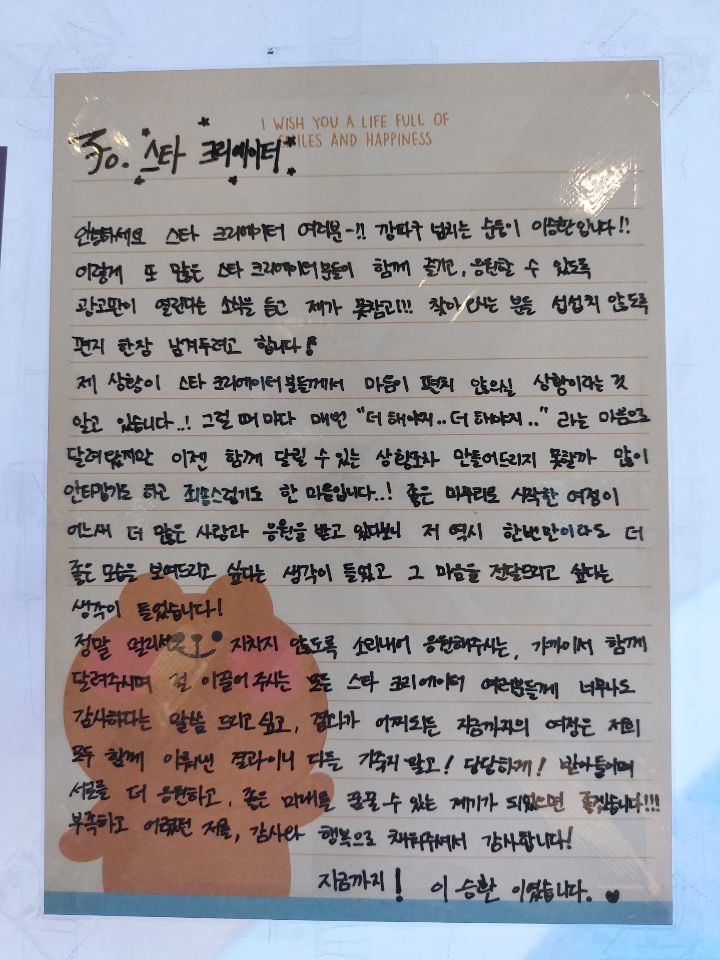 I WISH YOU A LIFE FULL OF
SMILES AND HAPPINESS
To. 스타 크리에이터
안녕하세요 스타 크리에이터 여러분~!! 깜찍구 넘치는 순둥이 이승환입니다!!
이렇게 또 많은 스타 크리에이터분들이 함께 즐기고, 응원할 수 있도록
광고판이 열린다는 소식을 듣고 제가 못참고!!! 찾아 오시는 분들 섭섭치 않도록
편지 한장 남겨두려고 합니다♪
제 상황이 스타 크리에이터분들께서 마음이 편치 않으실 상황이라는 것
알고 있습니다..! 그럴 때 마다 매번 "더 해야지.. 더 해야지.." 라는 마음으로
달려 왔지만 이젠 함께 달릴 수 있는 상황조차 만들어드리지 못할까 많이
안타깝기도 하고 죄송스럽기도 한 마음입니다..! 좋은 마무리로 시작한 여정이
어느새 더 많은 사랑과 응원을 받고 있다보니 저 역시 한번만이라도 더
좋은 모습을 보여드리고 싶다는 생각이 들었고 그 마음을 전달드리고 싶다는
생각이 들었습니다!
정말 멀리서 지치지 않도록 소리내어 응원해주시는, 가까이서 함께
달려주시며 절 이끌어 주시는 모든 스타 크리에이터 여러분들께 너무나도
감사하다는 말씀 드리고 싶고, 결과가 어찌되든 지금까지의 여정은 저희
모두 함께 이뤄낸 결과이니 다들 기죽지 말고! 당당하게! 받아들이며
서로를 더 응원하고, 좋은 미래를 꿈꿀 수 있는 계기가 되었으면 좋겠습니다!!!
부족하고 어렸던 저를, 감사와 행복으로 채워주셔서 감사합니다!
지금까지! 이승환 이었습니다. ♥